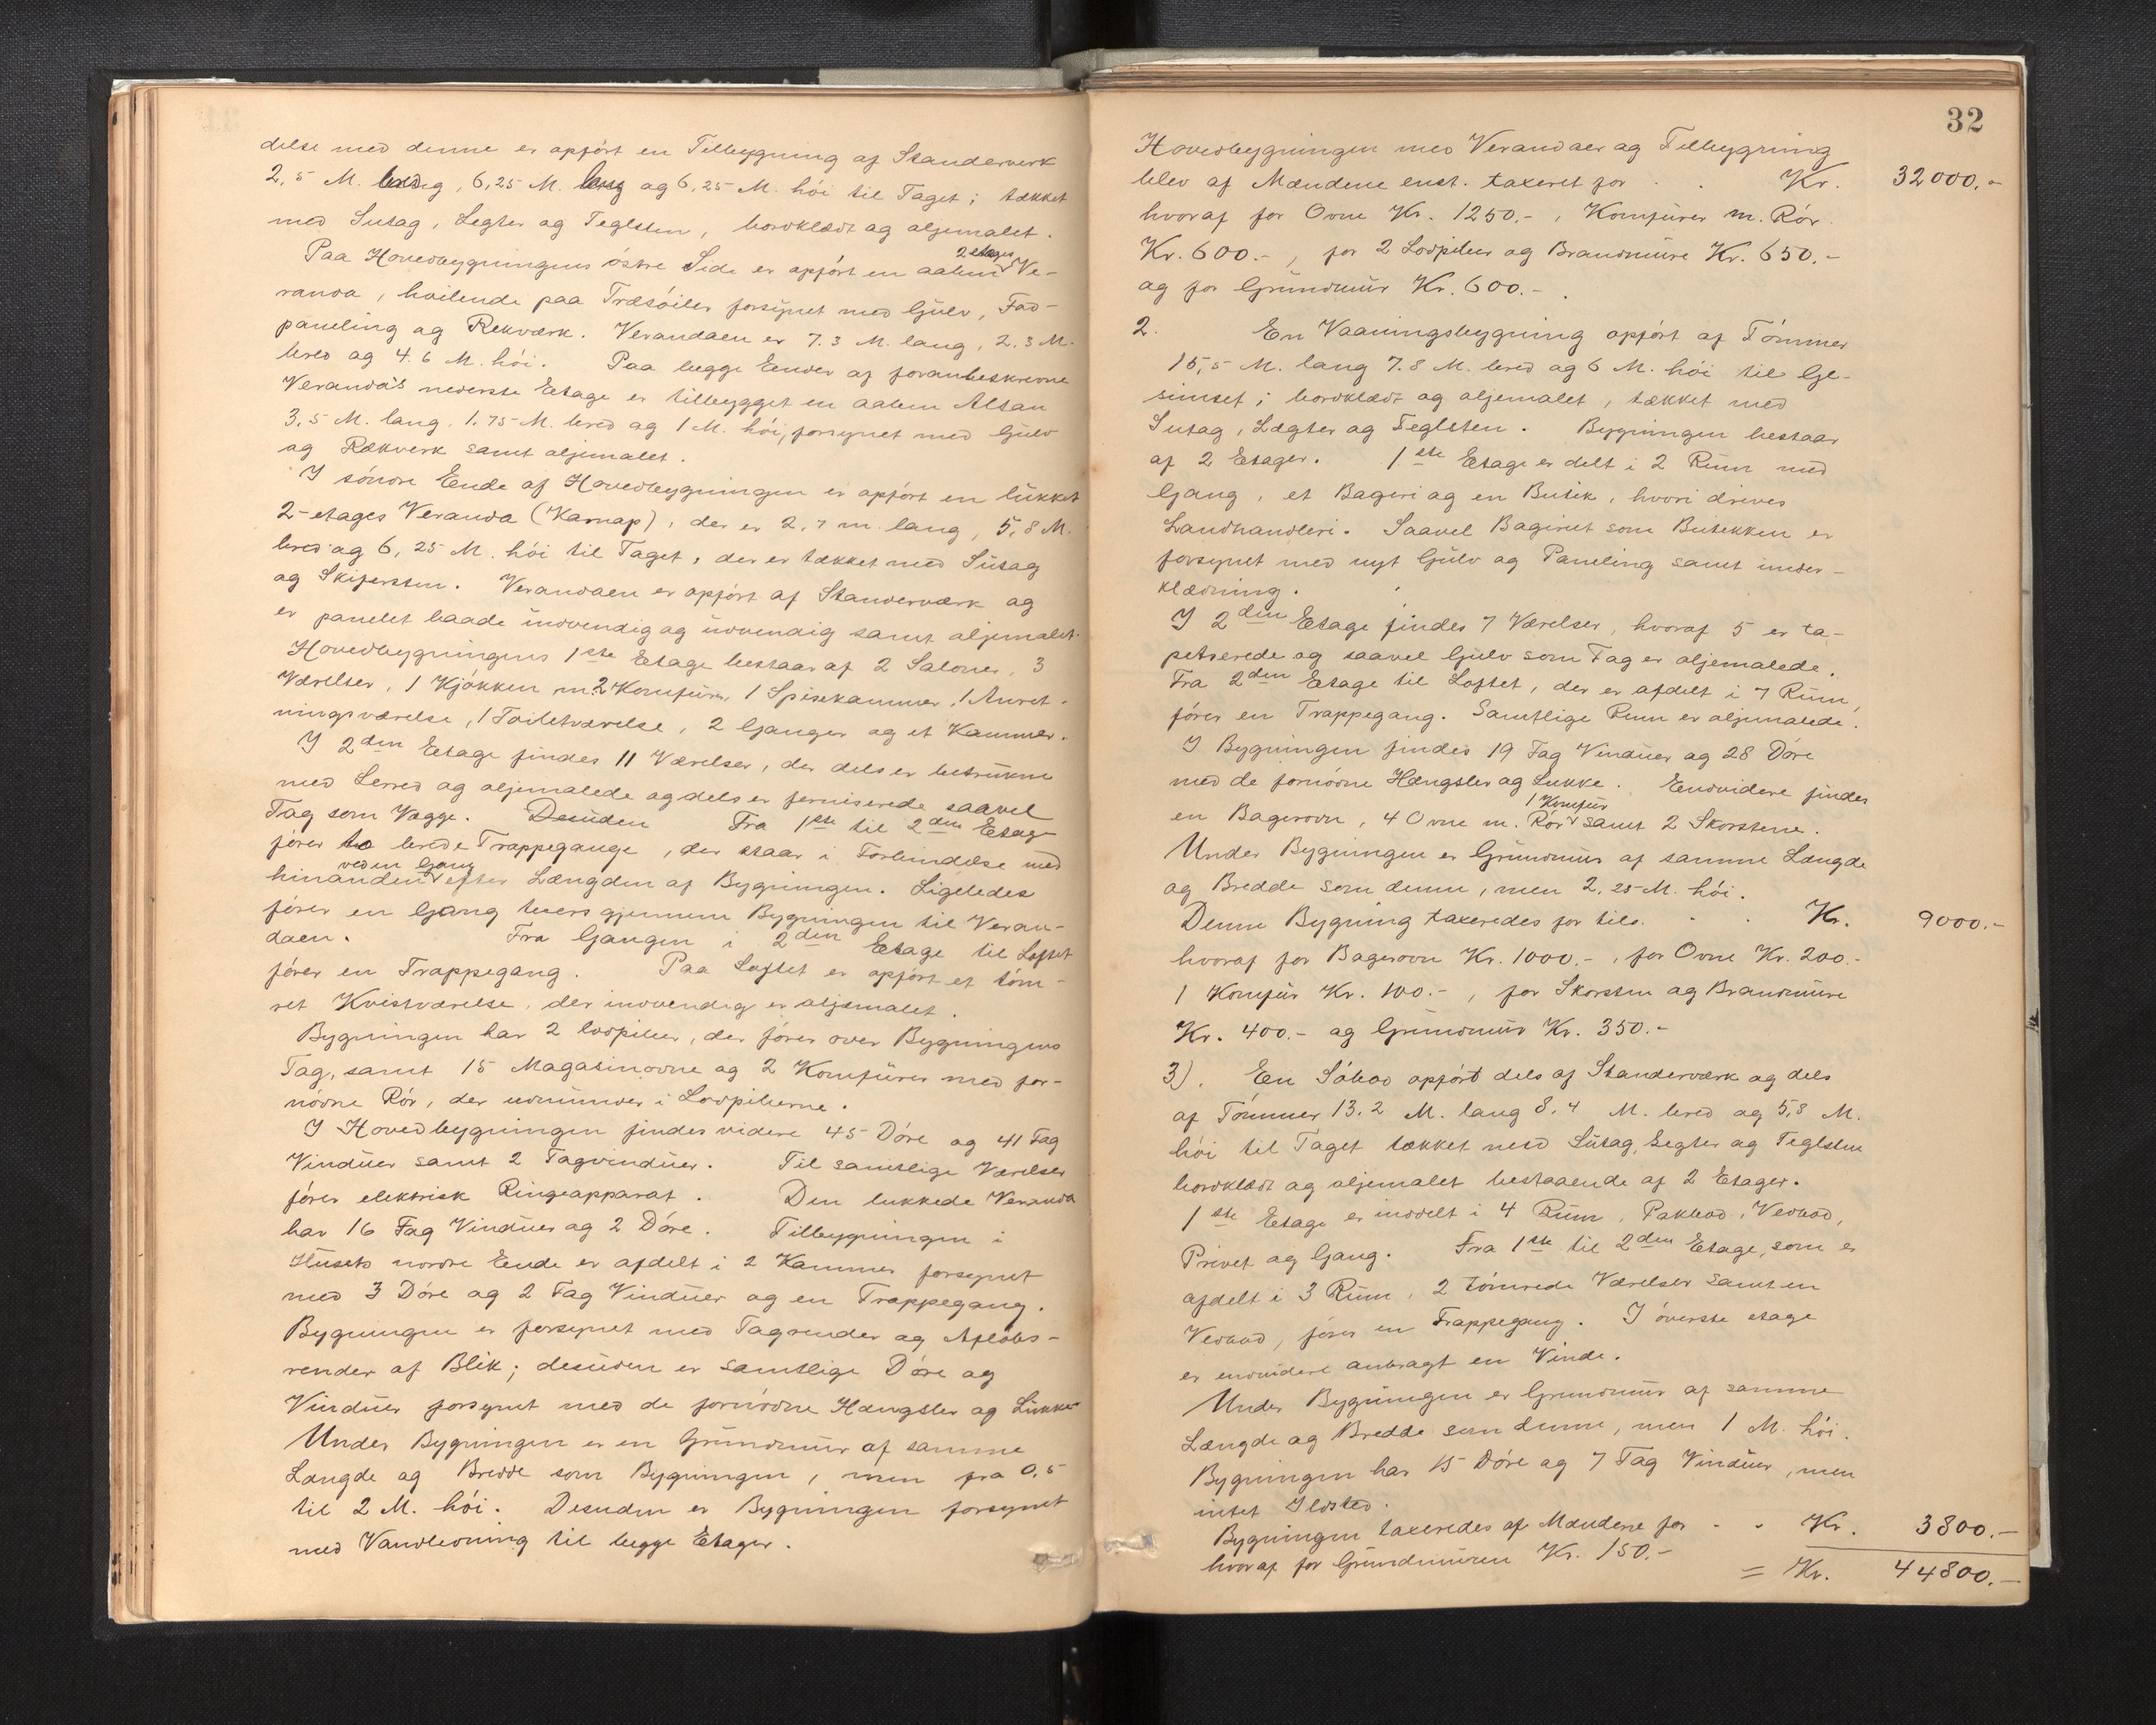 delse med denne er opført en Tilbygning af Standerverk
2,5 M. bred, 6,25 M. lang og 6,25 M. høi til Taget; tækket
med Sutag, Legter og Teglsten, bordklædt og oljemalet.
Paa Hovedbygningens østre Side er opført en aaben 2 etages Ve-
randa, hvilende paa Træsøiler forsynet med Gulv, Fad-
paneling og Rekværk. Verandaen er 7.3 M. lang, 2.3 M.
bred og 4.6 M. høi. Paa begge Ender af foranbeskrevne
Veranda's nederste Etage er tilbygget en aaben Altan
3,5 M. lang, 1.75 M. bred og 1 M. høi, forsynet med Gulv
og Rækverk samt oljemalet.
I søndre Ende af Hovedbygningen er opført en lukket
2-etages Veranda (Karnap), der er 2,7 m. lang, 5,8 M.
bred og 6,25 M. høi til Taget, der er tækket med Sutag
og Skifersten. Verandaen er opført af Standerværk og
er panelet baade indvendig og udvendig samt oljemalet.
Hovedbygningens 1ste Etage bestaar af 2 Saloner, 3
Værelser, 1 Kjøkken m. 2 Komfurer, 1 Spisekammer, 1 Anret-
ningsværelse, 1 Toiletværelse, 2 Ganger og et Kammer.
I 2den Etage findes 11 Værelser, der dels er betrukne
med Lerred og oljemalede og dels er ferniserede saavel
Tag som Vægge. Desuden Fra 1ste til 2den Etage
fører to brede Trappegange, der staar i Forbindelse med
hinanden ved en Gang efter Længden af Bygningen. Ligeledes
fører en Gang tvers gjennem Bygningen til Veran-
daen. Fra Gangen i 2den Etage til Loftet
fører en Trappegang. Paa Loftet er opført et tøm-
ret Kvistværelse, der indvendig er oljemalet.
Bygningen har 2 Lodpiber, der fører over Bygningens
Tag, samt 15 Magasinovne og 2 Komfurer med for-
nødne Rør, der udmunder i Lodpiberne.
I Hovedbygningen findes videre 45 Døre og 41 Fag
Vinduer samt 2 Tagvinduer. Til samtlige Værelser
fører elektrisk Ringeapparat. Den lukkede Veranda
har 16 Fag Vinduer og 2 Døre. Tilbygningen i
Husets nordre Ende er afdelt i 2 Kammer forsynet
med 3 Døre og 2 Fag Vinduer og en Trappegang.
Bygningen er forsynet med Tagrender og Afløbs-
render af Blik; desuden er samtlige Døre og
Vinduer forsynet med de fornødne Hængsler og Lukker
Under Bygningen er en Grundmur af samme
Længde og Bredde som Bygningen, men fra 0,5
til 2 M. høi. Desuden er Bygningen forsynet
med Vandledning til begge Etager.
32
Hovedbygningen med Verandaer og Tilbygning
blev af Mændene enst. taxeret for . . Kr. 32000.-
hvoraf for Ovne Kr. 1250.-, Komfurer m. Rør
Kr. 600.-, for 2 Lodpiber og Brandmure Kr. 650.-
og for Grundmur Kr. 600.-.
2. En Vaaningsbygning opført af Tømmer
15,5 M. lang 7.8 M. bred og 6 M. høi til Ge-
simset; bordklædt og oljemalet, tækket med
Sutag, Lægter og Teglsten. Bygningen bestaar
af 2 Etager. 1ste Etage er delt i 2 Rum med
Gang, et Bageri og en Butik, hvori drives
Landhandleri. Saavel Bageriet som Butikken er
forsynet med nyt Gulv og Paneling samt under-
klædning.
I 2den Etage findes 7 Værelser, hvoraf 5 er ta-
petserede og saavel Gulv som Tag er oljemalede.
Fra 2den Etage til Loftet, der er afdelt i 7 Rum,
fører en Trappegang. Samtlige Rum er oljemalede.
I Bygningen findes 19 Fag Vinduer og 28 Døre
med de fornødne Hængsler og Lukke. Endvidere findes
en Bagerovn, 4 Ovne m. Rør 1 Komfur samt 2 Skorstene.
Under Bygningen er Grundmur af samme Længde
og Bredde som denne, men 2,25 M. høi.
Denne Bygning taxeredes for tils. . . Kr. 9000.-
hvoraf for Bagerovn Kr. 1000.-, for Ovne Kr. 200.-
1 Komfur Kr. 100.-, for Skorsten og Brandmure
Kr. 400.- og Grundmur Kr. 350.-
3). En Søbod opført dels af Standerværk og dels
af Tømmer 13.2 M. lang 8.4 M. bred og 5,8 M.
høi til Taget tækket med Sutag, Legter og Teglsten
bordklædt og oljemalet bestaaende af 2 Etager.
1ste Etage er inddelt i 4 Rum, Pakbod, Vedbod,
Privet og Gang. Fra 1ste til 2den Etage, som er
afdelt i 3 Rum, 2 tømrede Værelser samt en
Vedbod, fører en Trappegang. I øverste etage
er endvidere anbragt en Vinde.
Under Bygningen er Grundmur af samme
Længde og Bredde som denne, men 1 M. høi.
Bygningen har 15 Døre og 7 Fag Vinduer, men
intet Ildsted.
Bygningen taxeredes af Mændene for . . Kr. 3800.-
hvoraf for Grundmuren Kr. 150.-
= Kr. 44800.-